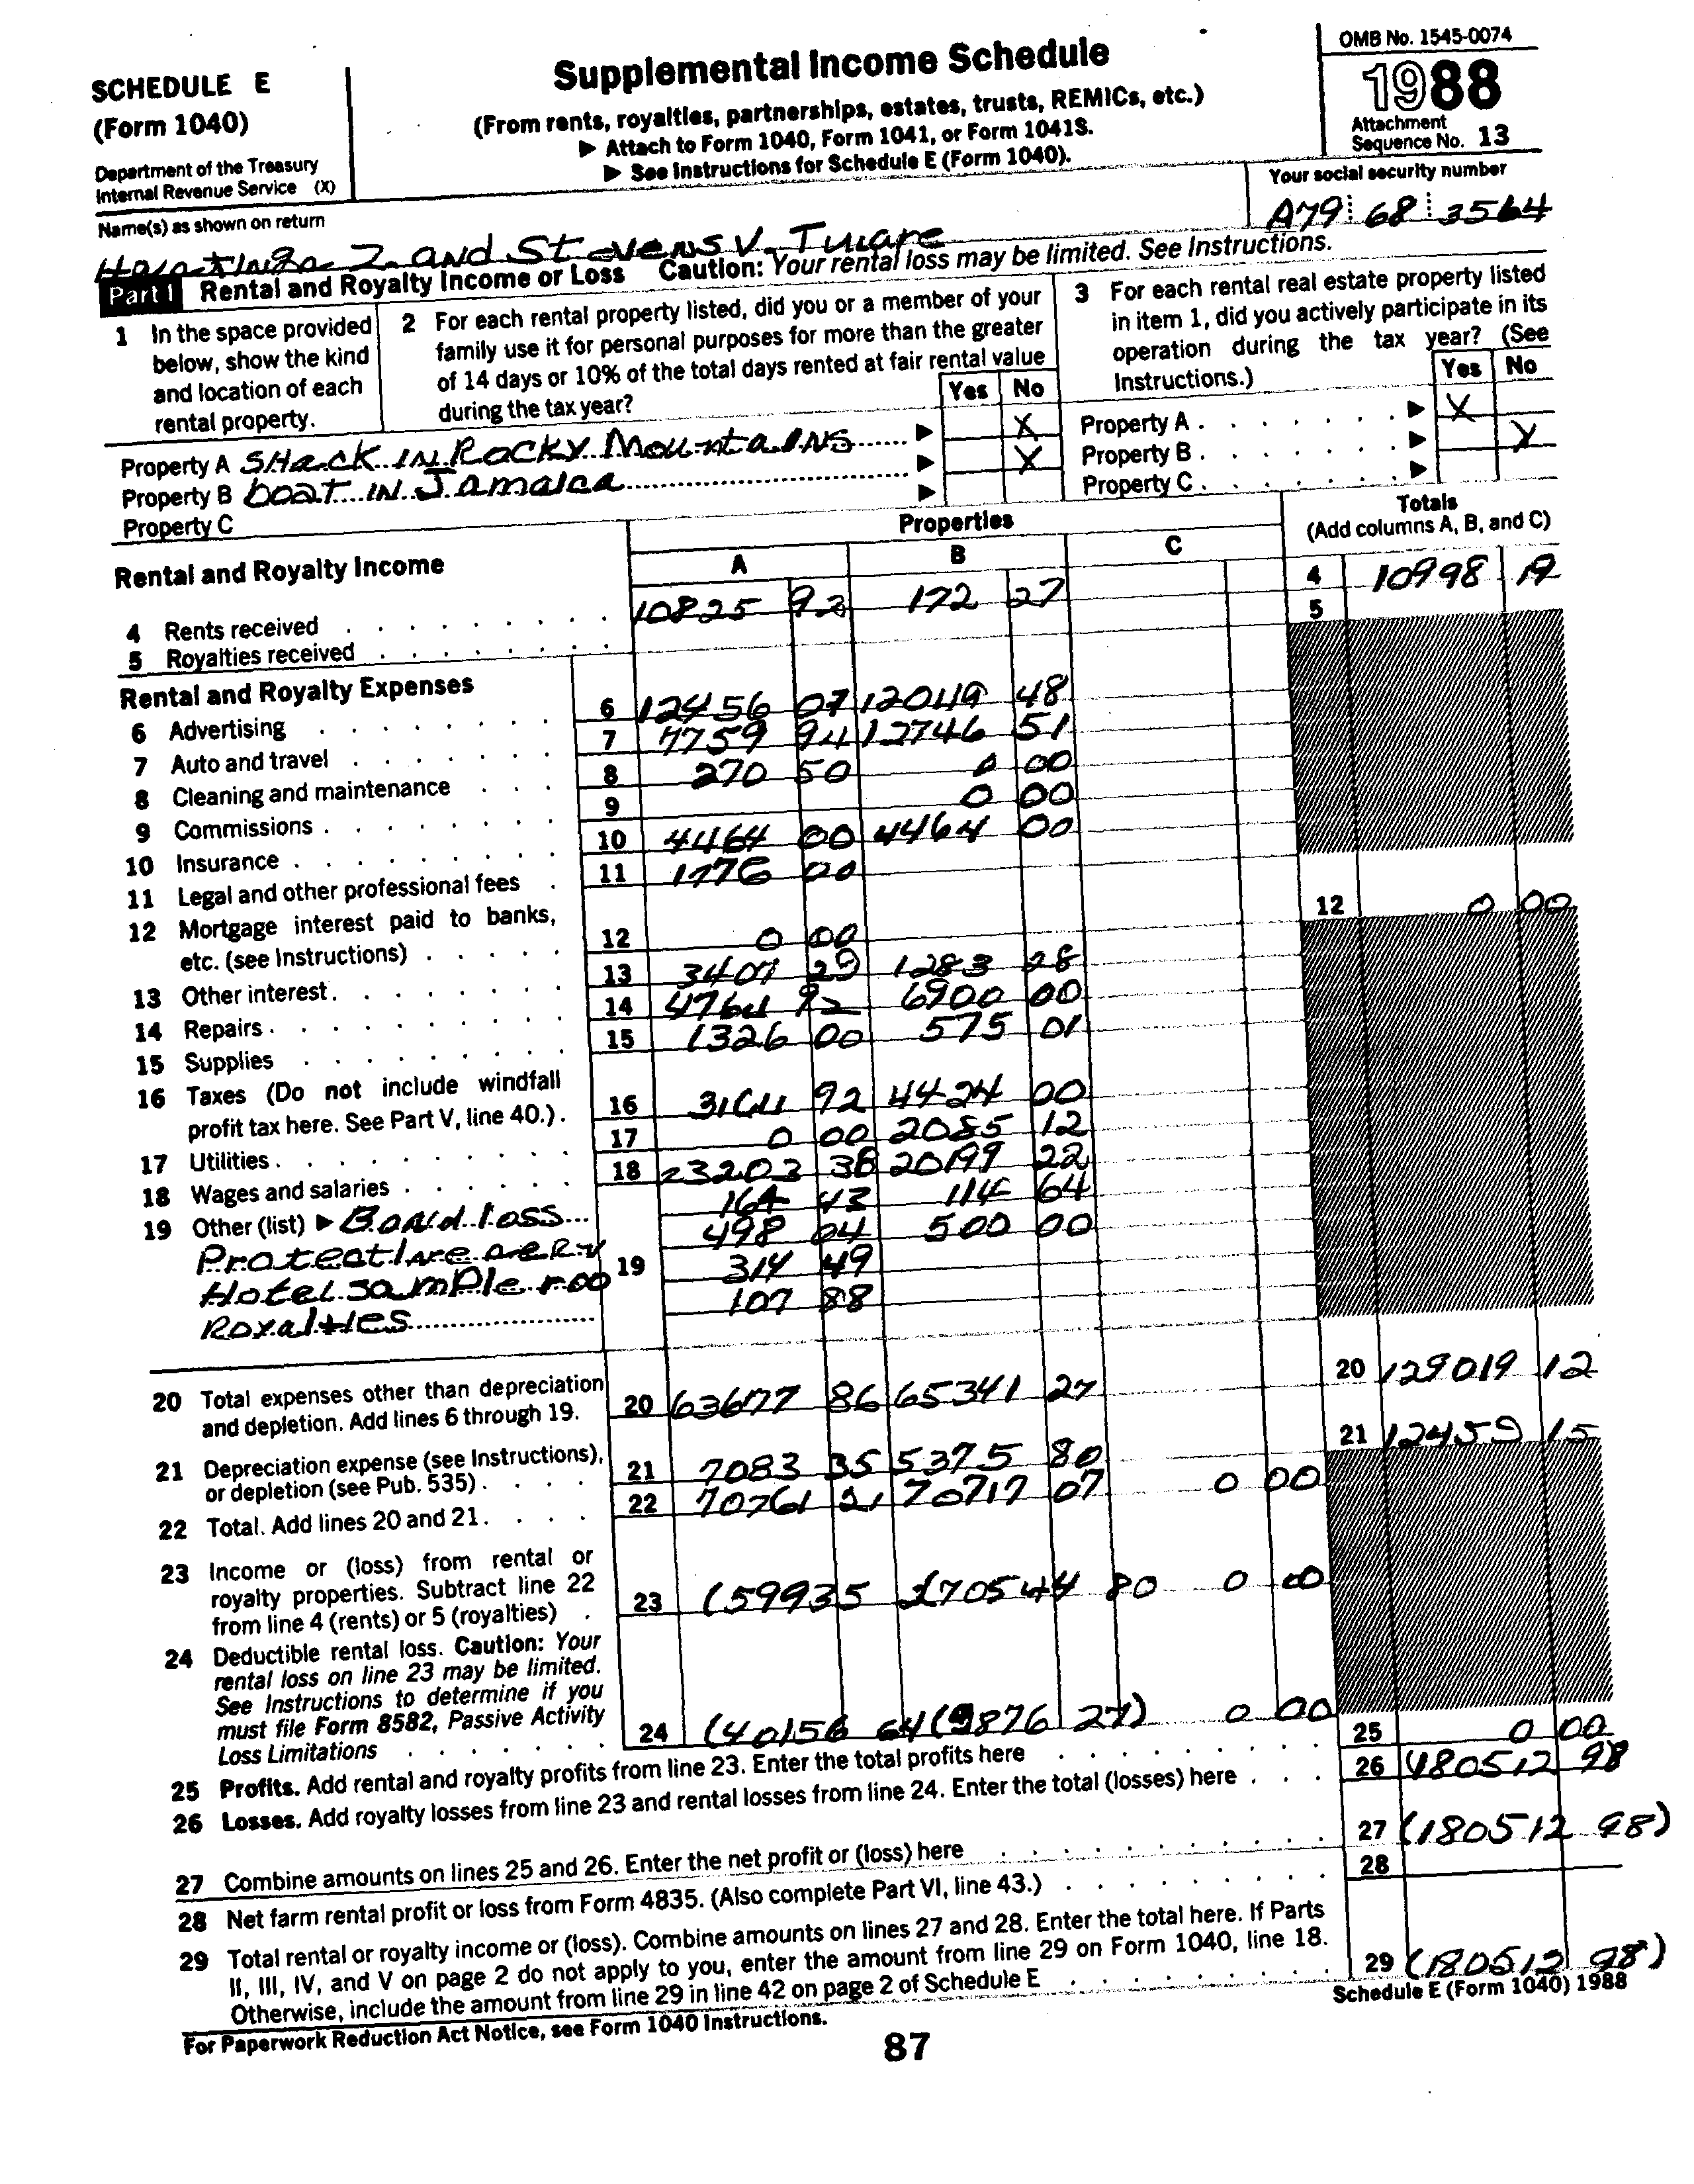 SCHEDULE E
(Form 1040)
Department of the Treasury
Internal Revenue Service (X)
Supplemental Income Schedule
(From rents, royalties, partnerships, estates, trusts, REMICs, etc.)
▶ Attach to Form 1040, Form 1041, or Form 1041S.
▶ See Instructions for Schedule E (Form 1040).
OMB No. 1545-0074
1988
Attachment
Sequence No. 13
Name(s) as shown on return
Your social security number
and Stevens V. Tulare
A79 68 3564
Part I Rental and Royalty Income or Loss Caution: Your rental loss may be limited. See Instructions.
1 In the space provided
below, show the kind
and location of each
rental property.
2 For each rental property listed, did you or a member of your
family use it for personal purposes for more than the greater
of 14 days or 10% of the total days rented at fair rental value
during the tax year?
Yes No
3 For each rental real estate property listed
in item 1, did you actively participate in its
operation during the tax year? (See
Instructions.)
Yes No
Property A SHack IN Rocky MountaINS ▶ X
Property B boaT IN Jamaica ▶ X
Property C ▶
Property A ▶ X
Property B ▶ X
Property C ▶
Rental and Royalty Income
Properties
A B C
Totals
(Add columns A, B, and C)
4 Rents received 10825 92 172 27 4 10998 19
5 Royalties received 5
Rental and Royalty Expenses
6 Advertising 6 12456 07 12049 48
7 Auto and travel 7 7759 94 12746 51
8 Cleaning and maintenance 8 270 50 0 00
9 Commissions 9 0 00
10 Insurance 10 4464 00 4464 00
11 Legal and other professional fees 11 1776 00
12 Mortgage interest paid to banks,
etc. (see Instructions) 12 0 00 12 0 00
13 Other interest 13 3407 29 1283 28
14 Repairs 14 4764 92 6900 00
15 Supplies 15 1326 00 575 01
16 Taxes (Do not include windfall
profit tax here. See Part V, line 40.) 16 3164 92 4424 00
17 Utilities 17 0 00 2085 12
18 Wages and salaries 18 23203 38 20199 22
19 Other (list) ▶ Bond loss 164 43 114 64
Protective 498 04 500 00
Hotel sample roo 19 314 49
Royalties 107 88
20 Total expenses other than depreciation
and depletion. Add lines 6 through 19. 20 63677 86 65341 27 20 129019 12
21 Depreciation expense (see Instructions),
or depletion (see Pub. 535) 21 7083 35 5375 80 21 12459 15
22 Total. Add lines 20 and 21 22 70761 21 70717 07 0 00
23 Income or (loss) from rental or
royalty properties. Subtract line 22
from line 4 (rents) or 5 (royalties) 23 (59935 (70544 80 0 00
24 Deductible rental loss. Caution: Your
rental loss on line 23 may be limited.
See Instructions to determine if you
must file Form 8582, Passive Activity
Loss Limitations 24 (40156 64 (9876 27) 0 00
25 Profits. Add rental and royalty profits from line 23. Enter the total profits here 25 0 00
26 Losses. Add royalty losses from line 23 and rental losses from line 24. Enter the total (losses) here 26 (180512 98
27 Combine amounts on lines 25 and 26. Enter the net profit or (loss) here 27 (180512 98)
28 Net farm rental profit or loss from Form 4835. (Also complete Part VI, line 43.) 28
29 Total rental or royalty income or (loss). Combine amounts on lines 27 and 28. Enter the total here. If Parts
II, III, IV, and V on page 2 do not apply to you, enter the amount from line 29 on Form 1040, line 18.
Otherwise, include the amount from line 29 in line 42 on page 2 of Schedule E 29 (180512 98)
For Paperwork Reduction Act Notice, see Form 1040 Instructions.
Schedule E (Form 1040) 1988
87